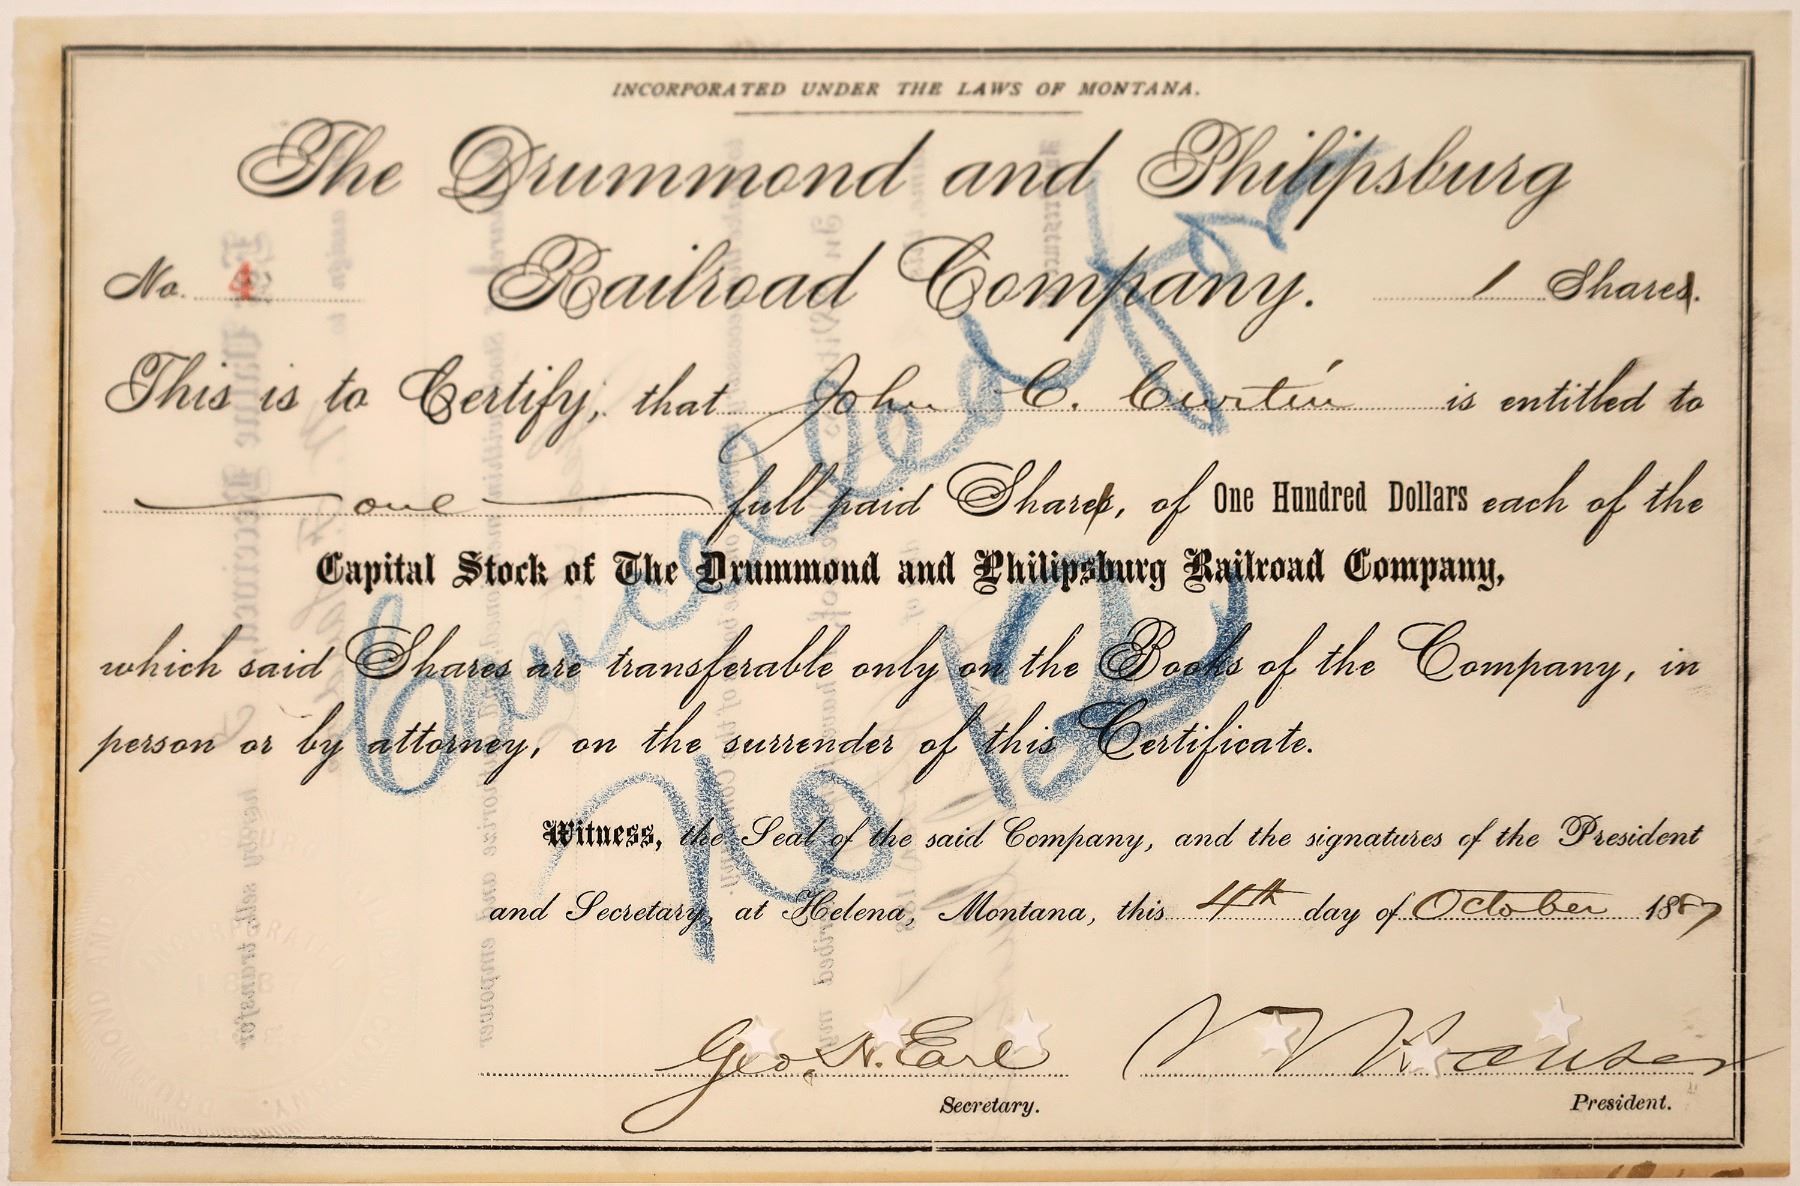 INCORPORATED UNDER THE LAWS OF MONTANA.
The Drummond and Philipsburg
No. 4 Railroad Company. 1 Shares.
This is to Certify, that John C. Curtin is entitled to
one full paid Shares, of One Hundred Dollars each of the
Capital Stock of The Drummond and Philipsburg Railroad Company,
which said Shares are transferable only on the Books of the Company, in
person or by attorney, on the surrender of this Certificate.
Witness, the Seal of the said Company, and the signatures of the President
and Secretary, at Helena, Montana, this 4th day of October 1887
Geo. N. Earl
Secretary.
Hauser
President.
Cancelled for
No 12